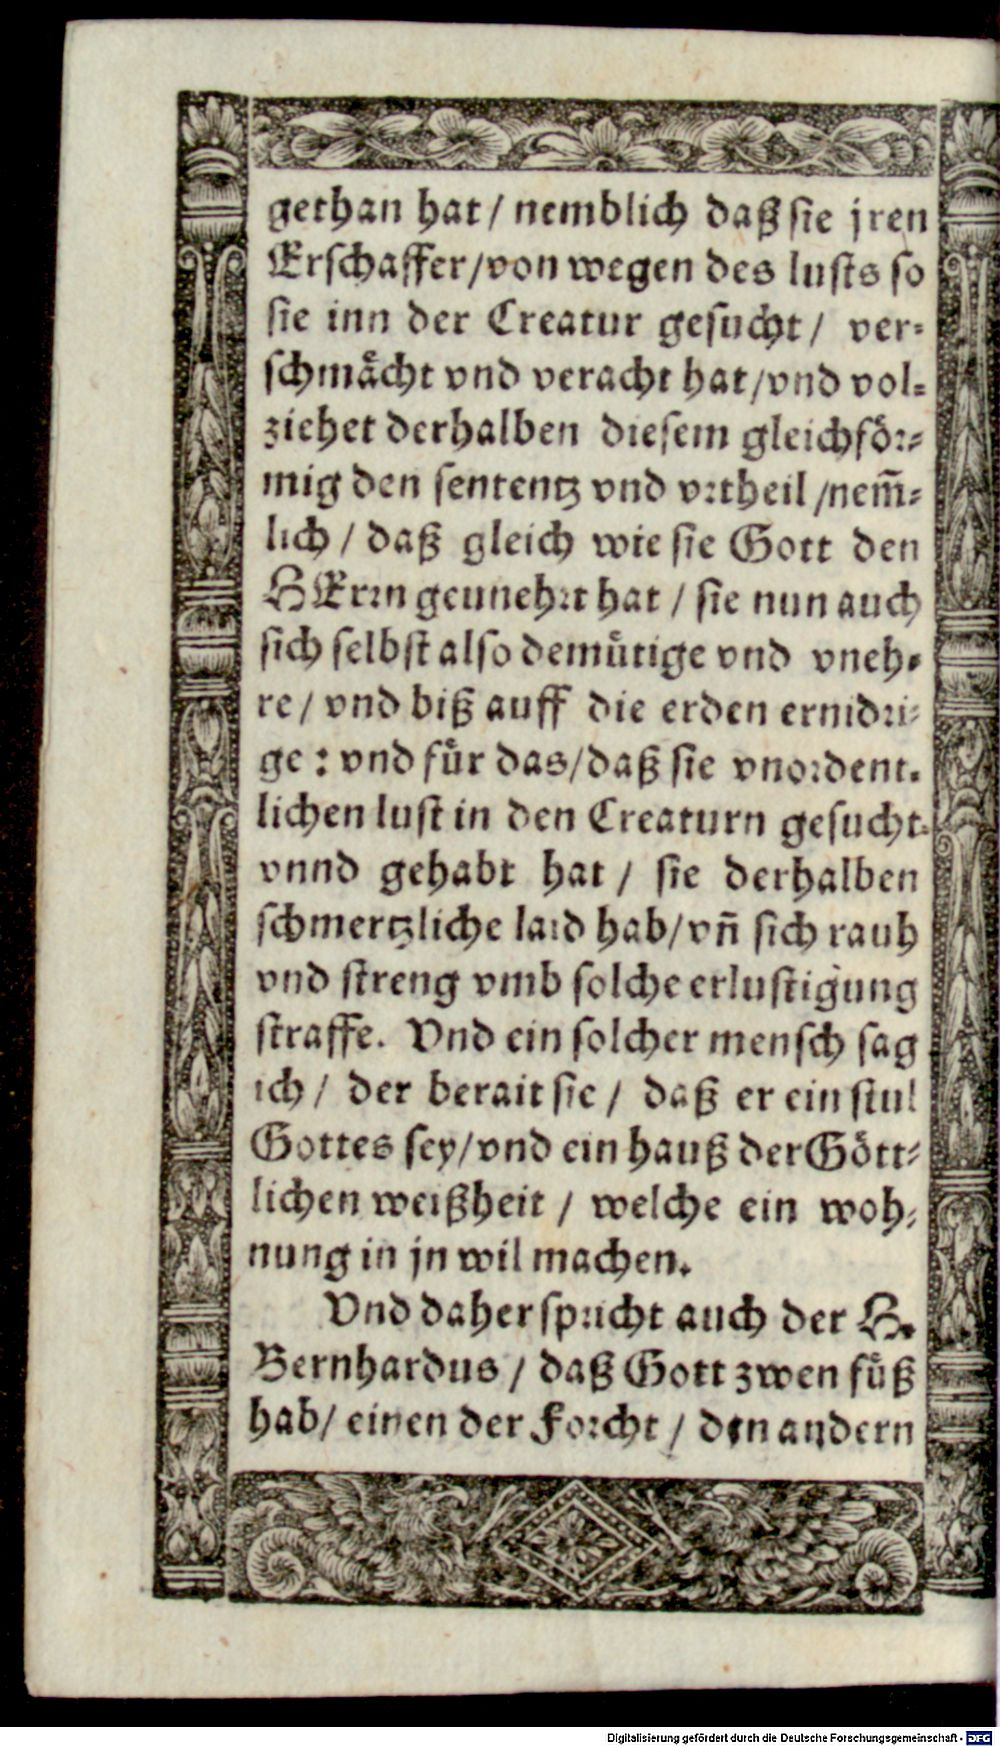 gethan hat / nemblich daß sie jren
Erschaffer/von wegen des lusts so
sie inn der Creatur gesucht / ver⸗
schmaͤcht vnd veracht hat/vnd vol⸗
ziehet derhalben diesem gleichfoͤr⸗
mig den sententz vnd vrtheil /nem̃⸗
lich / daß gleich wie sie Gott den
HErrn geunehrt hat / sie nun auch
sich selbst also demuͤtige vnd vneh⸗
re / vnd biß auff die erden ernidri⸗
ge : vnd fuͤr das/daß sie vnordent⸗
lichen lust in den Creaturn gesucht
vnnd gehabt hat / sie derhalben
schmertzliche laid hab/vñ sich rauh
vnd streng vmb solche erlustigung
straffe. Vnd ein solcher mensch sag
ich / der berait sie / daß er ein stul
Gottes sey/vnd ein hauß der Goͤtt⸗
lichen weißheit / welche ein woh⸗
nung in jn wil machen.
Vnd daher spricht auch der H.
Bernhardus / daß Gott zwen fuͤß
hab/ einen der Forcht / den andern
Digitalisierung gefördert durch die Deutsche Forschungsgemeinschaft - DFG